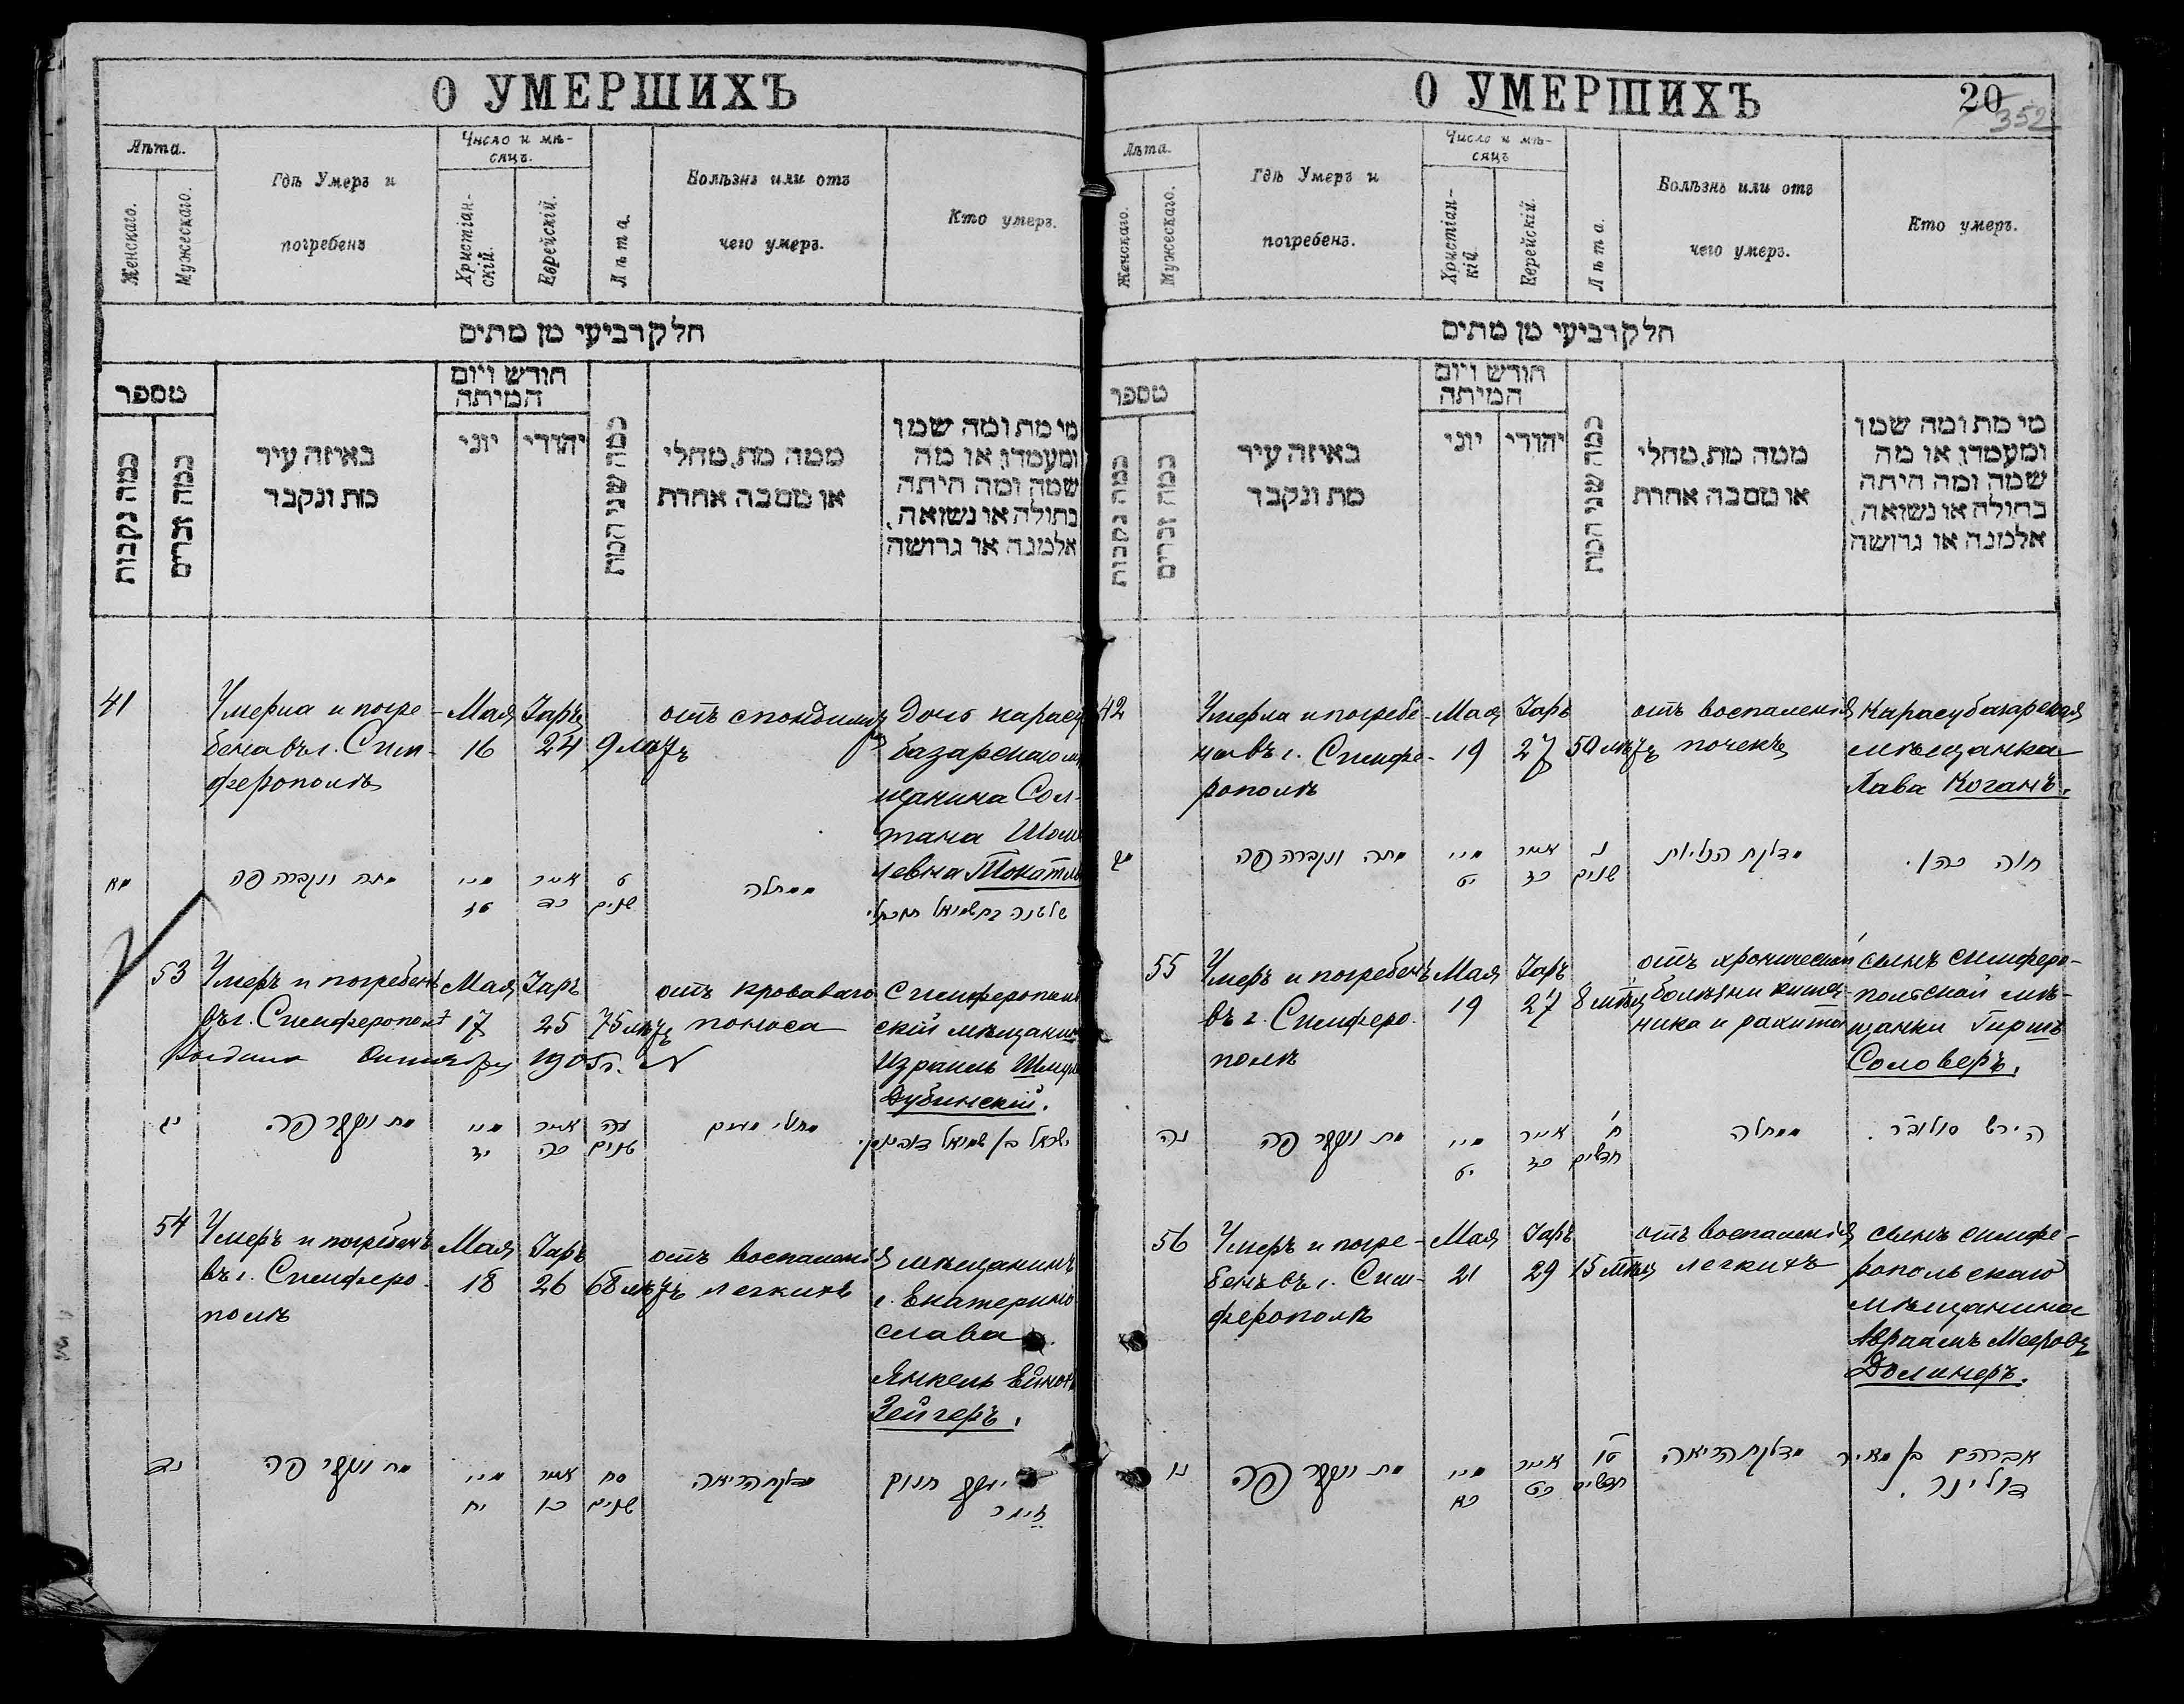 О УМЕРШИХЪ
Лѣта.
Женскаго.
Мужескаго.
Гдѣ Умеръ и
погребенъ
Число и мѣ-
сяцъ.
Христіан-
скій.
Еврейскій.
Лѣта.
Болѣзнь или отъ
чего умеръ.
Кто умеръ.
חלק רביעי מן מתים
מספר
כמה נקבות
כמה זכרים
באיזה עיר
מת ונקבר
חודש ויום
המיתה
יוני
יהודי
כמה שני המת
ממה מת, מחלי
או מסבה אחרת
מי מת ומה שמו
ומעמדו, או מה
שמה ומה היתה
בתולה או נשואה,
אלמנה או גרושה
41
Умерла и погре-
бена въ г. Сим-
ферополѣ
Мая
16
Іаръ
24
9 лѣтъ
отъ спондилита
Дочь карасу
базарскаго мѣ
щанина Сол-
тана Шому
левна Токатлы
מא
מתה ונקברה פה
מיי
טז
אייר
כד
ט
שנים
ממחלה
שלטנה בת שמואל
53
Умеръ и погребенъ
въ г. Симферополѣ
Мая
17
Іаръ
25
75 лѣтъ
отъ кроваваго
поноса
Симферополь
скій мѣщанинъ
Израиль Шмул
Дубинскій.
1905 г.
נג
מת ונקבר פה
מיי
יז
אייר
כה
עה
שנים
מחלי מעים
ישראל בן שמואל דובינסקי
54
Умеръ и погребенъ
въ г. Симферо-
полѣ
Мая
18
Іаръ
26
68 лѣтъ
отъ воспаленія
легкихъ
мѣщанинъ
г. Екатерино
слава
Янкель
Зейгеръ.
נד
מת ונקבר פה
מיי
יח
אייר
כו
סח
שנים
מדלקת הריאה
יעקב
זייגר
О УМЕРШИХЪ
20
352
Лѣта.
Женскаго.
Мужескаго.
Гдѣ Умеръ и
погребенъ.
Число и мѣ-
сяцъ
Христіан-
кій.
Еерейскій.
Лѣта.
Болѣзнь или отъ
чего умеръ.
Кто умеръ.
חלק רביעי מן מתים
מספר
כמה נקבות
כמה זכרים
באיזה עיר
מת ונקבר
חודש ויום
המיתה
יוני
יהודי
כמה שני המת
ממה מת, מחלי
או מסבה אחרת
מי מת ומה שמו
ומעמדו, או מה
שמה ומה היתה
בתולה או נשואה,
אלמנה או גרושה
42
Умерла и погребе-
на въ г. Симфе-
рополѣ
Мая
19
Іаръ
27
50 лѣтъ
отъ воспаленія
почекъ
Карасубазарская
мѣщанка
Хава Коганъ.
מב
מתה ונקברה פה
מיי
יט
אייר
כז
נ
שנים
מדלקת הכליות
חוה כהן.
55
Умеръ и погребенъ
въ г. Симферо-
полѣ
Мая
19
Іаръ
27
8 мѣсц
отъ хронической
болѣзни кишеч-
ника и рахита
сынъ симферо-
польской мѣ-
щанки Гиршъ
Соловеръ.
נה
מת ונקבר פה
מיי
יט
אייר
כז
ח
חדשים
ממחלה
הירש סולובר.
56
Умеръ и погре-
бенъ въ г. Сим-
ферополѣ
Мая
21
Іаръ
29
15 мѣсц
отъ воспаленія
легкихъ
сынъ симфе-
ропольскаго
мѣщанина
Авраамъ Мееровъ
Долинеръ.
נו
מת ונקבר פה
מיי
כא
אייר
כט
טו
חדשים
מדלקת הריאה
אברהם בן מאיר
דולינר.